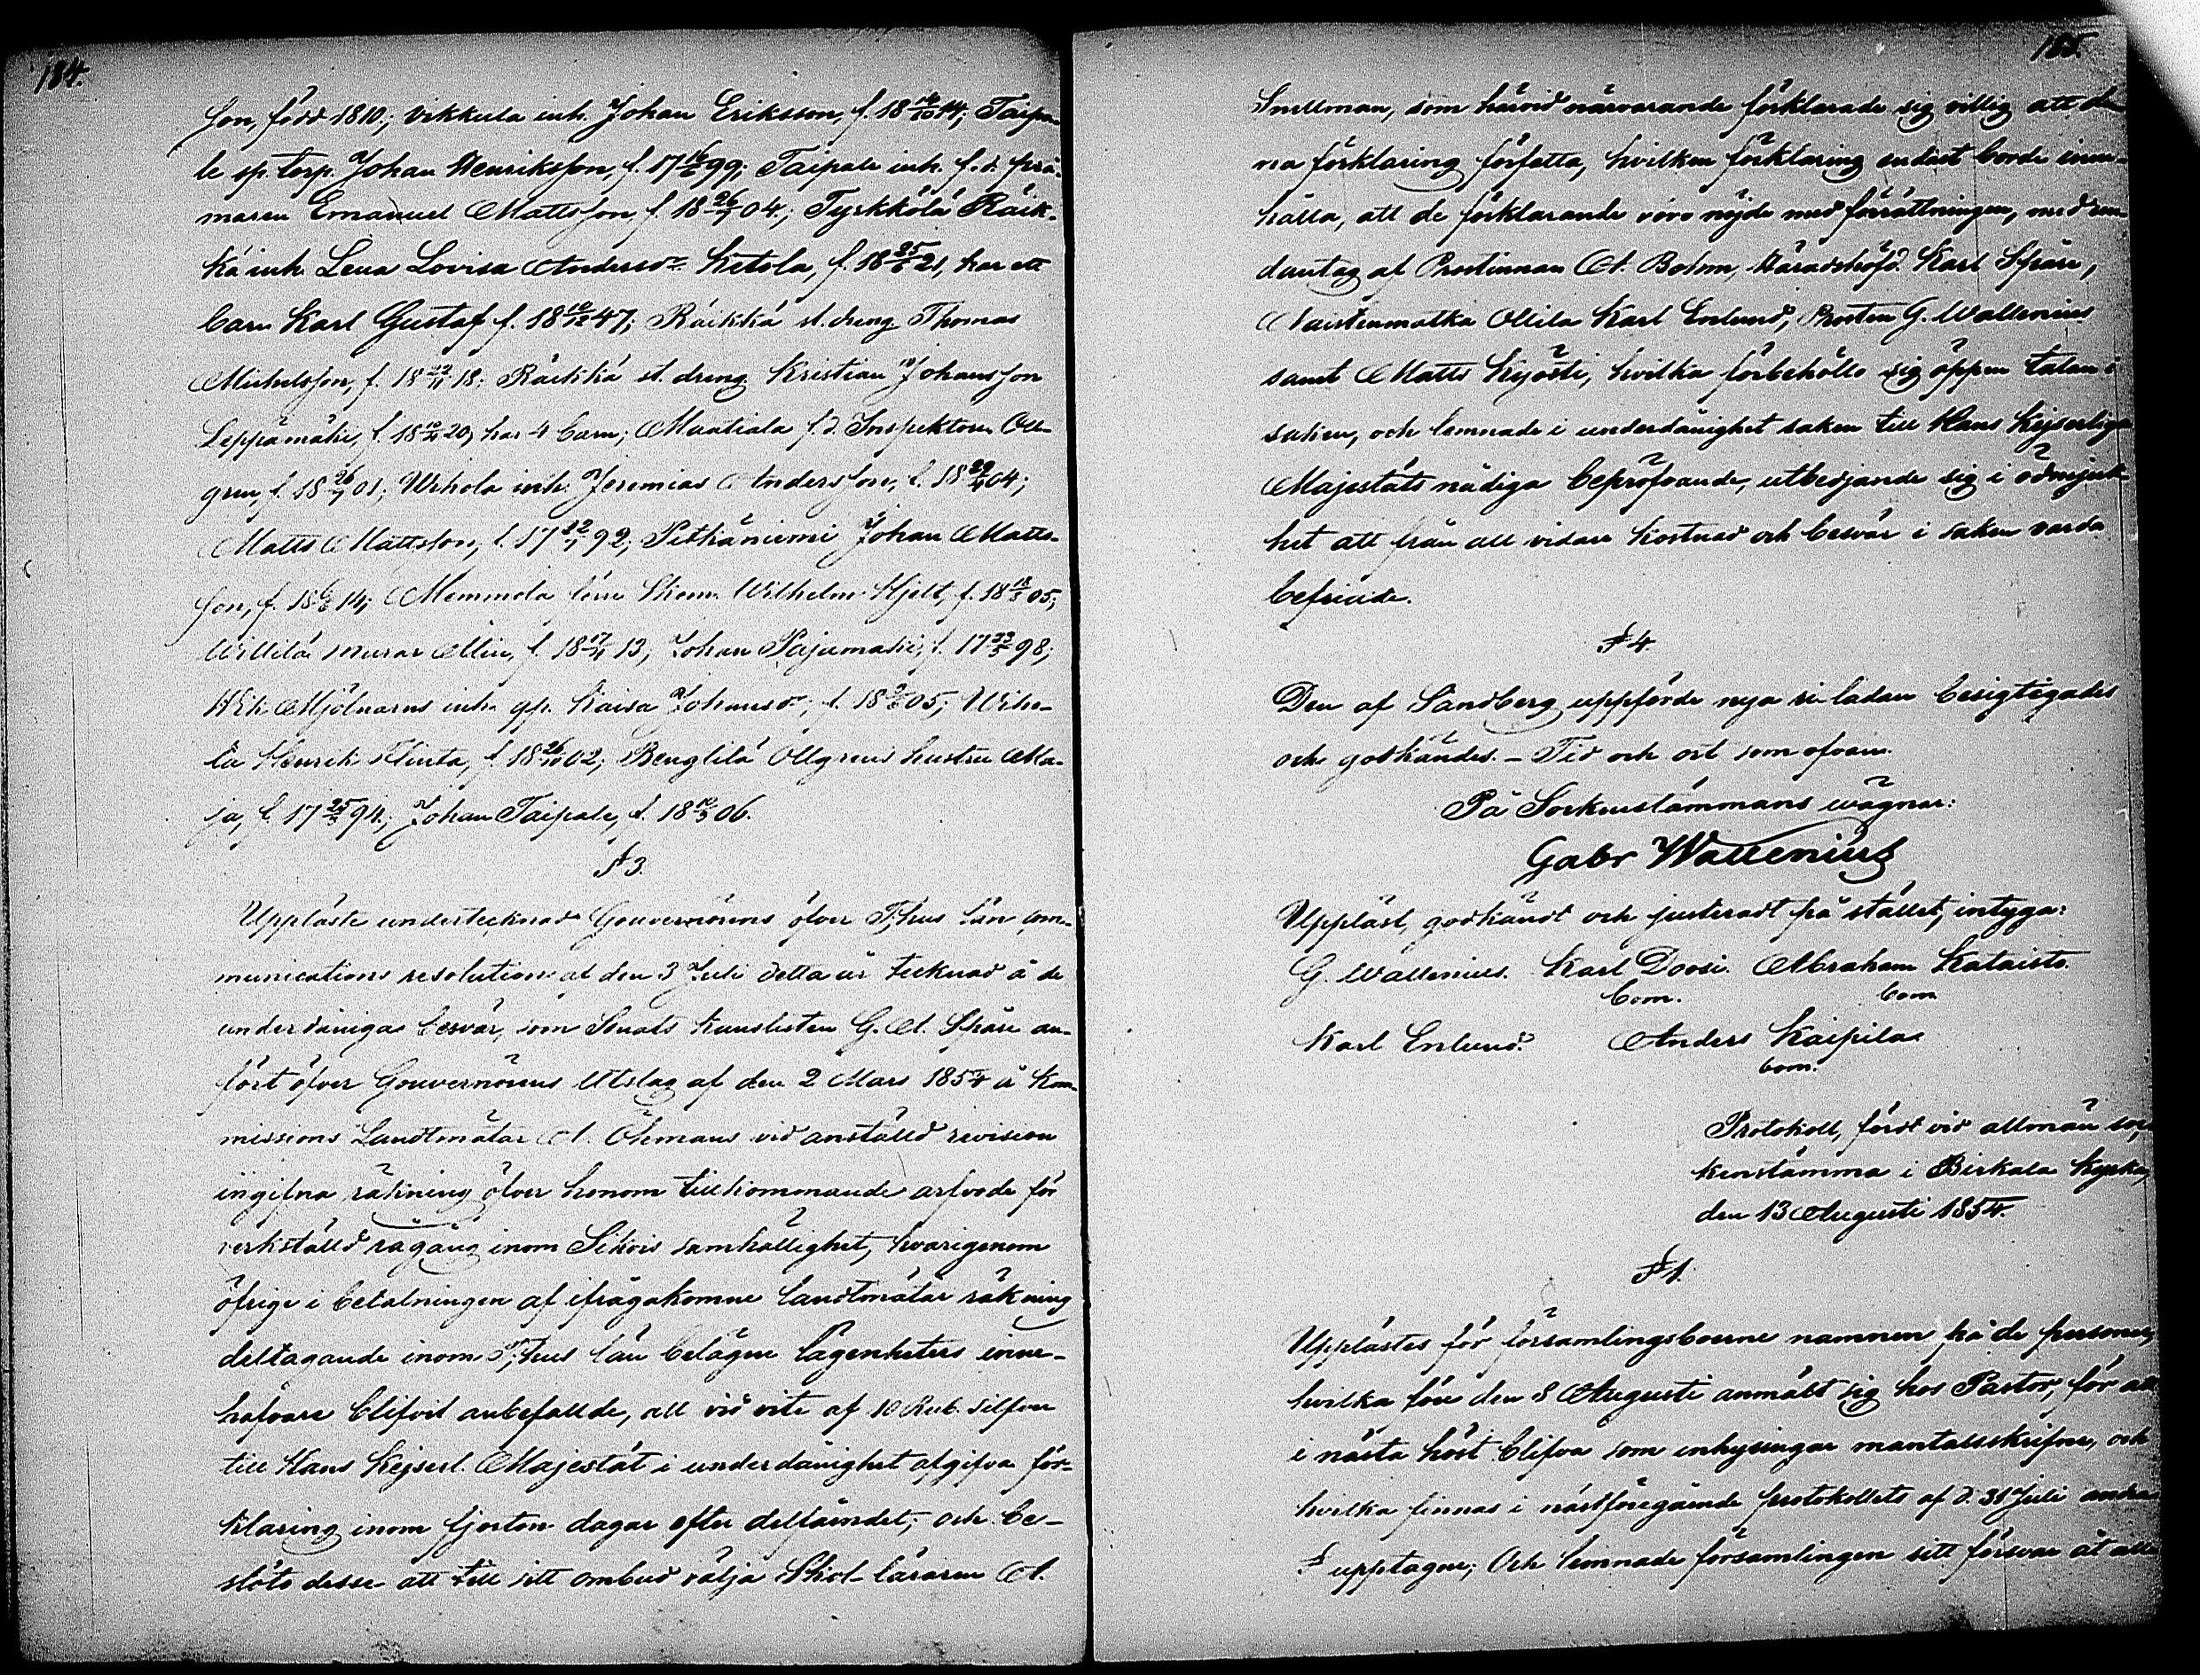 184.
son, född 1810; Vikkula inh. Johan Eriksson, f. 18 14; Taipa-
le sp. torp. Johan Henriksson, f. 17 16/2 99; Taipale inh. f. d.
maren Emanuel Mattsson f. 18 26/7 04; Tyrkkölä Räik-
kä inh. Lena Lovisa Andersdr Ketola, f. 18 25/6 21, har ett
barn Karl Gustaf f. 18 47; Räikkä st. dreng Thomas
Michelsson, f. 18 18; Räikkä st. dreng Kristian Johansson
Leppämäki, f. 18 20, har 4 barn; Maatiala f. d. Inspektoren Oll-
gren, f. 18 26/7 01; Wihola inh. Jeremias Andersson, f. 18 29/4 04;
Matts Mattsson, f. 17 92; Pitkäniemi Johan Matts-
son, f. 18 14; Memmola Wilhelm Hjelt, f. 18 18/5 05;
Willilä murar Allin, f. 18 17/4 13, Johan Pajumäki, f. 17 23/3 98;
Mjölnarns inh. gp. Kaisa Johansdr, f. 18 05; Wiho-
la Henrik Flinta, f. 18 26/10 02; Benglilä Ollgrens hustru Ma-
ja, f. 17 25/3 94; Johan Taipale, f. 18 06.
§ 3.
Uppläste undertecknad Gouvernörens öfver T;hus län com-
munications resolution af den 3 Juli detta år tecknad å de
underdåniga besvär, som Senats kanslisten G. A. Spåre an-
fört öfver Gouvernörens Utslag af den 2 Mars 1854 å Kom-
missions Landtmätar A. Öhmans vid anstäld revision
ingifna räkning öfver honom tillkommande arfvode för
verkstäld rågång inom Sikois samfällighet, hvarigenom
öfrige i betalningen af ifrågakomne landtmätar räkning
deltagande inom T;hus län belägne lägenheters inne-
hafvare blifvit anbefallde, att vid vite af 10 Rub. silfver
till Hans Kejserl. Majestät i underdånighet afgifva för-
klaring inom fjorton dagar efter delfåendet; och be-
slöto desse att till sitt ombud välja Skol-läraren A.
185.
Snellman, som härvid närvarande förklarade sig villig att den-
na förklaring författa, hvilken förklaring endast borde inne-
hålla, att de förklarande voro nöjde med förrättningen, med un-
dantag af Prostinnan A. Bohm, Häradshöfd. Karl Spåre,
Naistenmatka Ollila Karl Enlund, Prosten G. Wallenius
samt Matts Kyösti, hvilka förbehöllo sig öppen talan i
saken, och lemnade i underdånighet saken till Hans Kejserliga
Majestäts nådiga bepröfvande, utbedjande sig i ödmjuk-
het att från all vidare kostnad och besvär i saken varda
befriade.
§ 4.
Den af Sandberg uppförde nya ri-ladan besigtigades
och godkändes. – Tid och ort som ofvan.
På Sockenstämmans wägnar:
Gabr Wallenius
Uppläst, godkändt och justeradt på stället, intyga:
G. Wallenius. Karl Doosi. Abraham Kataisto.
bom. bom.
Karl Enlund. Anders Kaipila
bom.
Protokoll, fördt vid allmän soc-
kenstämma i Birkala kyrka,
den 13 Augusti 1854.
§ 1.
Upplästes för församlingsboerne namnen på de personer,
hvilka före den 8 Augusti anmält sig hos Pastor, för att
i nästa höst blifva som inhysingar mantalsskrifne, och
hvilka finnas i nästföregående protokollets af d. 31 Juli andra
§ upptagne; Och lemnade församlingen sitt försvar åt alla